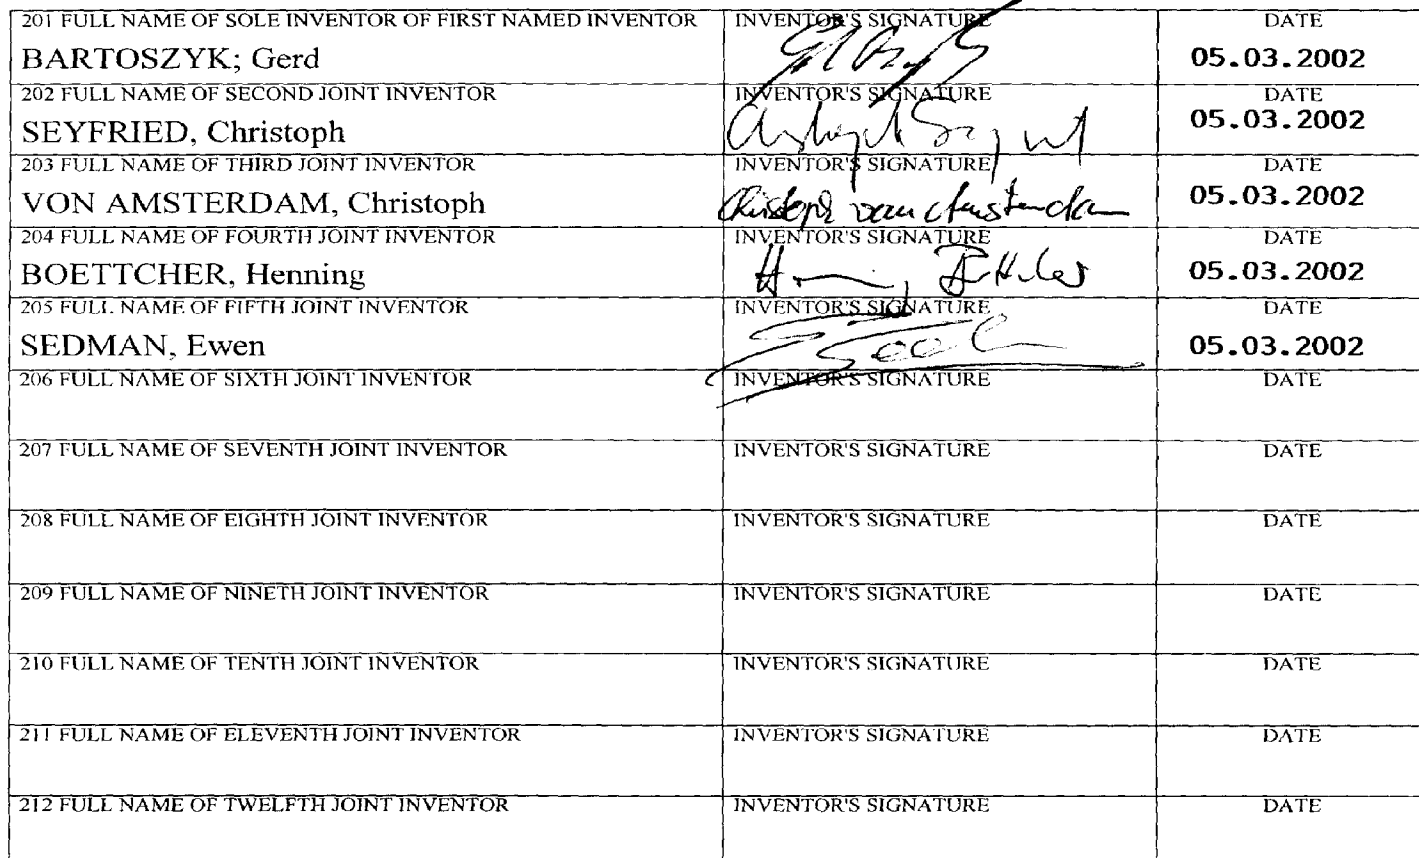 201 FULL NAME OF SOLE INVENTOR OF FIRST NAMED INVENTOR INVENTOR'S SIGNATURE DATE
BARTOSZYK; Gerd 05.03.2002
202 FULL NAME OF SECOND JOINT INVENTOR INVENTOR'S SIGNATURE DATE
SEYFRIED, Christoph 05.03.2002
203 FULL NAME OF THIRD JOINT INVENTOR INVENTOR'S SIGNATURE DATE
VON AMSTERDAM, Christoph Christoph van Amsterdam 05.03.2002
204 FULL NAME OF FOURTH JOINT INVENTOR INVENTOR'S SIGNATURE DATE
BOETTCHER, Henning 05.03.2002
205 FULL NAME OF FIFTH JOINT INVENTOR INVENTOR'S SIGNATURE DATE
SEDMAN, Ewen 05.03.2002
206 FULL NAME OF SIXTH JOINT INVENTOR INVENTOR'S SIGNATURE DATE
207 FULL NAME OF SEVENTH JOINT INVENTOR INVENTOR'S SIGNATURE DATE
208 FULL NAME OF EIGHTH JOINT INVENTOR INVENTOR'S SIGNATURE DATE
209 FULL NAME OF NINETH JOINT INVENTOR INVENTOR'S SIGNATURE DATE
210 FULL NAME OF TENTH JOINT INVENTOR INVENTOR'S SIGNATURE DATE
211 FULL NAME OF ELEVENTH JOINT INVENTOR INVENTOR'S SIGNATURE DATE
212 FULL NAME OF TWELFTH JOINT INVENTOR INVENTOR'S SIGNATURE DATE